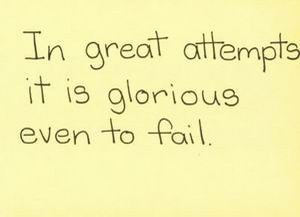 In great attempts
it is glorious
even to fail.